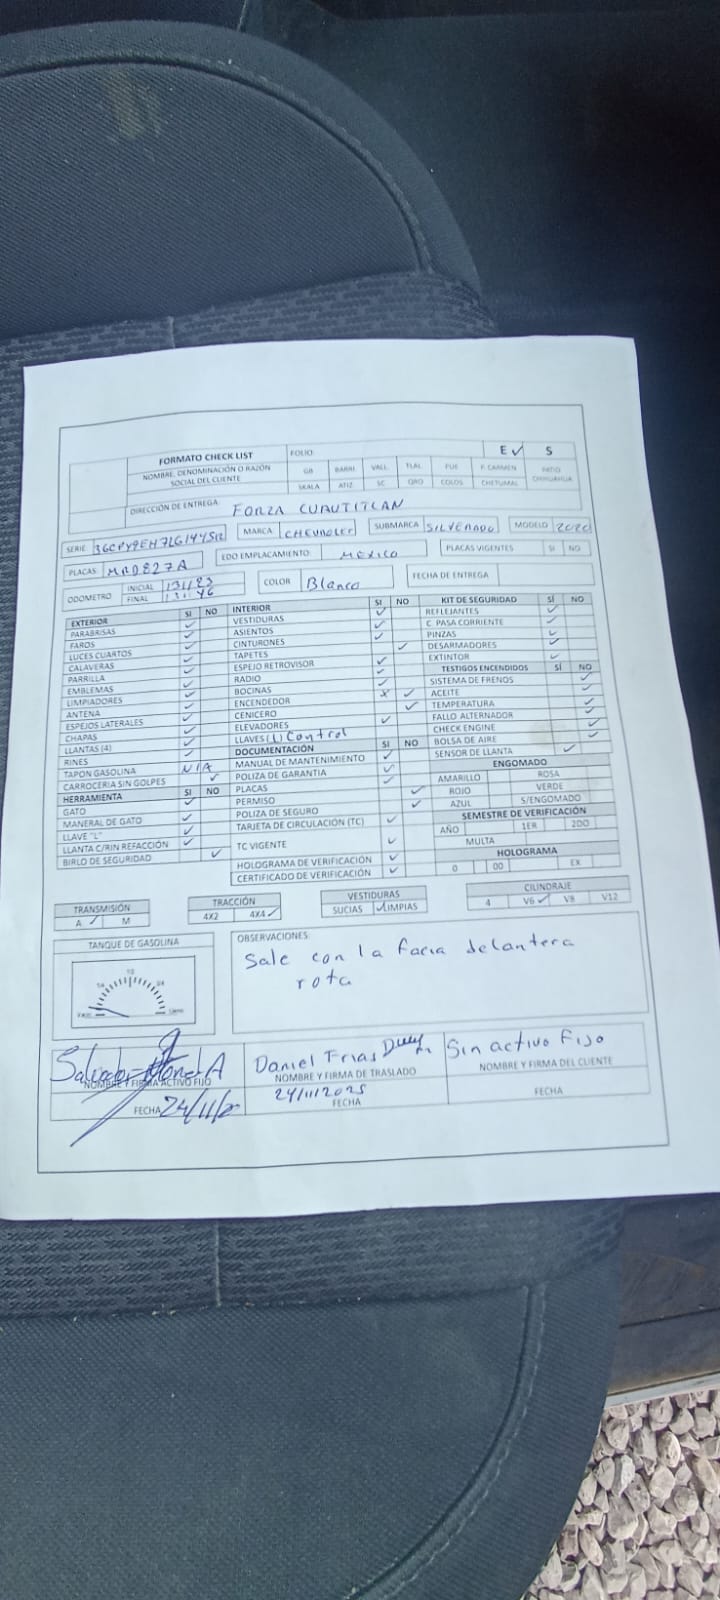 FORMATO CHECK LIST FOLIO: E ✓ S
NOMBRE, DENOMINACIÓN O RAZÓN SOCIAL DEL CLIENTE GB BARRI. VALL. TLAL PUE P. CARMEN PATIO CHIHUAHUA
SKALA ATIZ SC QRO COLOS CHETUMAL
DIRECCIÓN DE ENTREGA: FORZA CUAUTITLAN
SERIE MARCA CHEVROLET SUBMARCA SILVERADO MODELO 2020
PLACAS EDO EMPLACAMIENTO: MEXICO PLACAS VIGENTES SI NO
ODOMETRO INICIAL COLOR Blanco FECHA DE ENTREGA
FINAL
EXTERIOR SI NO INTERIOR SI NO KIT DE SEGURIDAD SÍ NO
PARABRISAS ✓ VESTIDURAS ✓ REFLEJANTES ✓
FAROS ✓ ASIENTOS ✓ C. PASA CORRIENTE ✓
LUCES CUARTOS ✓ CINTURONES ✓ PINZAS ✓
CALAVERAS ✓ TAPETES ✓ DESARMADORES ✓
PARRILLA ✓ ESPEJO RETROVISOR ✓ EXTINTOR ✓
EMBLEMAS ✓ RADIO ✓ TESTIGOS ENCENDIDOS SÍ NO
LIMPIADORES ✓ BOCINAS SISTEMA DE FRENOS ✓
ANTENA ✓ ENCENDEDOR ACEITE ✓
ESPEJOS LATERALES ✓ CENICERO TEMPERATURA ✓
CHAPAS ✓ ELEVADORES ✓ FALLO ALTERNADOR ✓
LLANTAS (4) ✓ LLAVES (1) Control CHECK ENGINE ✓
RINES ✓ DOCUMENTACIÓN SI NO BOLSA DE AIRE ✓
TAPON GASOLINA N/A MANUAL DE MANTENIMIENTO ✓ SENSOR DE LLANTA ✓
CARROCERIA SIN GOLPES ✓ POLIZA DE GARANTIA ✓ ENGOMADO
HERRAMIENTA SI NO PLACAS AMARILLO ROSA
GATO ✓ PERMISO ROJO VERDE
MANERAL DE GATO ✓ POLIZA DE SEGURO AZUL S/ENGOMADO
LLAVE "L" ✓ TARJETA DE CIRCULACIÓN (TC) ✓ SEMESTRE DE VERIFICACIÓN
LLANTA C/RIN REFACCIÓN ✓ TC VIGENTE ✓ AÑO 1ER 2DO
BIRLO DE SEGURIDAD ✓ MULTA
HOLOGRAMA DE VERIFICACIÓN ✓ HOLOGRAMA
CERTIFICADO DE VERIFICACIÓN ✓ 0 00 EX
TRANSMISIÓN TRACCIÓN VESTIDURAS CILINDRAJE
A ✓ M 4X2 4X4 ✓ SUCIAS ✓ LIMPIAS 4 V6 ✓ V8 V12
TANQUE DE GASOLINA OBSERVACIONES:
Sale con la facia delantera
rota
Vacio Lleno
Daniel Frias Sin activo Fijo
NOMBRE Y FIRMA ACTIVO FIJO NOMBRE Y FIRMA DE TRASLADO NOMBRE Y FIRMA DEL CLIENTE
24/11/2025
FECHA 24/11/2 FECHA FECHA